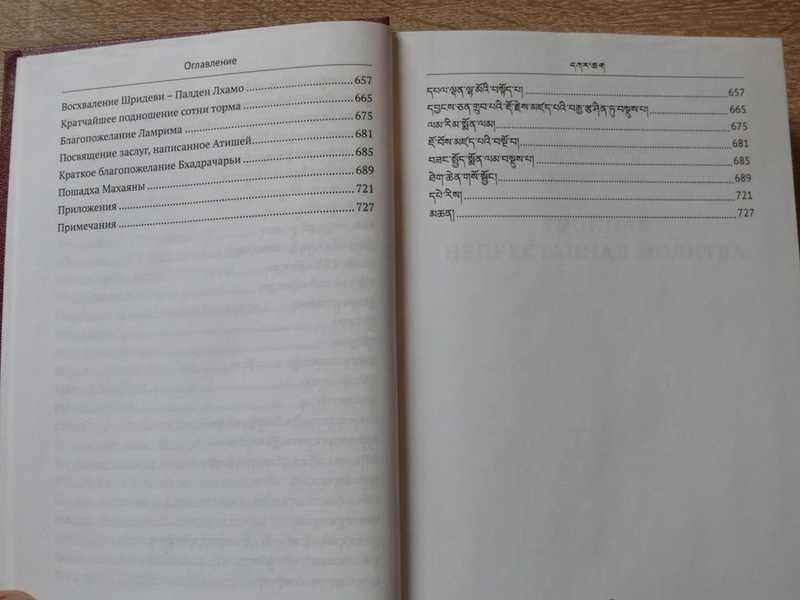 Оглавление
Восхваление Шридеви – Палден Лхамо 657
Кратчайшее подношение сотни торма 665
Благопожелание Ламрима 675
Посвящение заслуг, написанное Атишей 681
Краткое благопожелание Бхадрачарьи 685
Пошадха Махаяны 689
Приложения 721
Примечания 727
དཀར་ཆག
དཔལ་ལྡན་ལྷ་མོའི་བསྟོད་པ། 657
དབྱངས་ཅན་གྲུབ་པའི་རྡོ་རྗེས་མཛད་པའི་བརྒྱ་ཙ་ཤིན་ཏུ་བསྡུས་པ། 665
ལམ་རིམ་སྨོན་ལམ། 675
ཇོ་བོས་མཛད་པའི་བསྔོ་བ། 681
བཟང་སྤྱོད་སྨོན་ལམ་བསྡུས་པ། 685
ཐེག་ཆེན་གསོ་སྦྱོང་། 689
དཔེ་རིས། 721
མཆན། 727